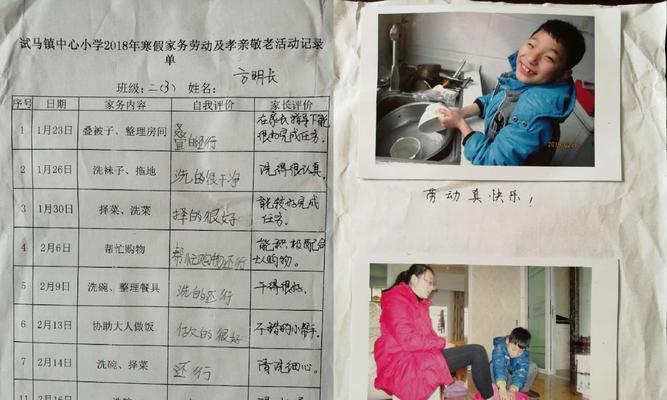 试马镇中心小学2018年寒假家务劳动及孝亲敬老活动记录
单
班级:二(3) 姓名: 方明长
序号 日期 家务内容 自我评价 家长评价
1 1月23日 叠被子、整理房间 叠的还行 在家长指导下能很好完成任务。
2 1月26日 洗袜子、拖地 洗的很干净 洗得很认真。
3 1月30日 择菜、洗菜 择的很好 能较好完成任务。
4 2月6日 帮忙购物 帮忙购物还行 能积极配合大人购物。
5 2月9日 洗碗、整理餐具 洗的还行 干得很好。
6 2月13日 协助大人做饭 做的很好 不错的小帮手。
7 2月14日 洗碗、择菜 还行 清洗细心。
11 2月16日
劳动真快乐!